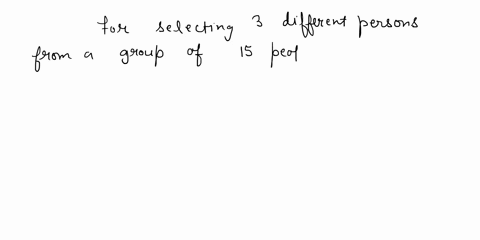 for selecting 3 different persons
from a group of 15 peop